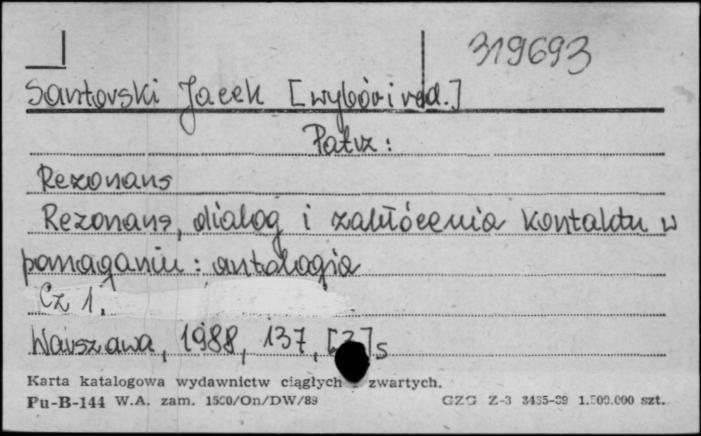 319693
Santorski Jacek [wybór i red.]
Patrz:
Rezonans
Rezonans, dialog i zakłócenia kontaktu w
pomaganiu : antologia
Cz 1.
Warszawa, 1988, 137, [3] s
Karta katalogowa wydawnictw ciągłych - zwartych.
Pu-B-144 W.A. zam. 1500/On/DW/89 GZG Z-3 3435-89 1.500.000 szt.